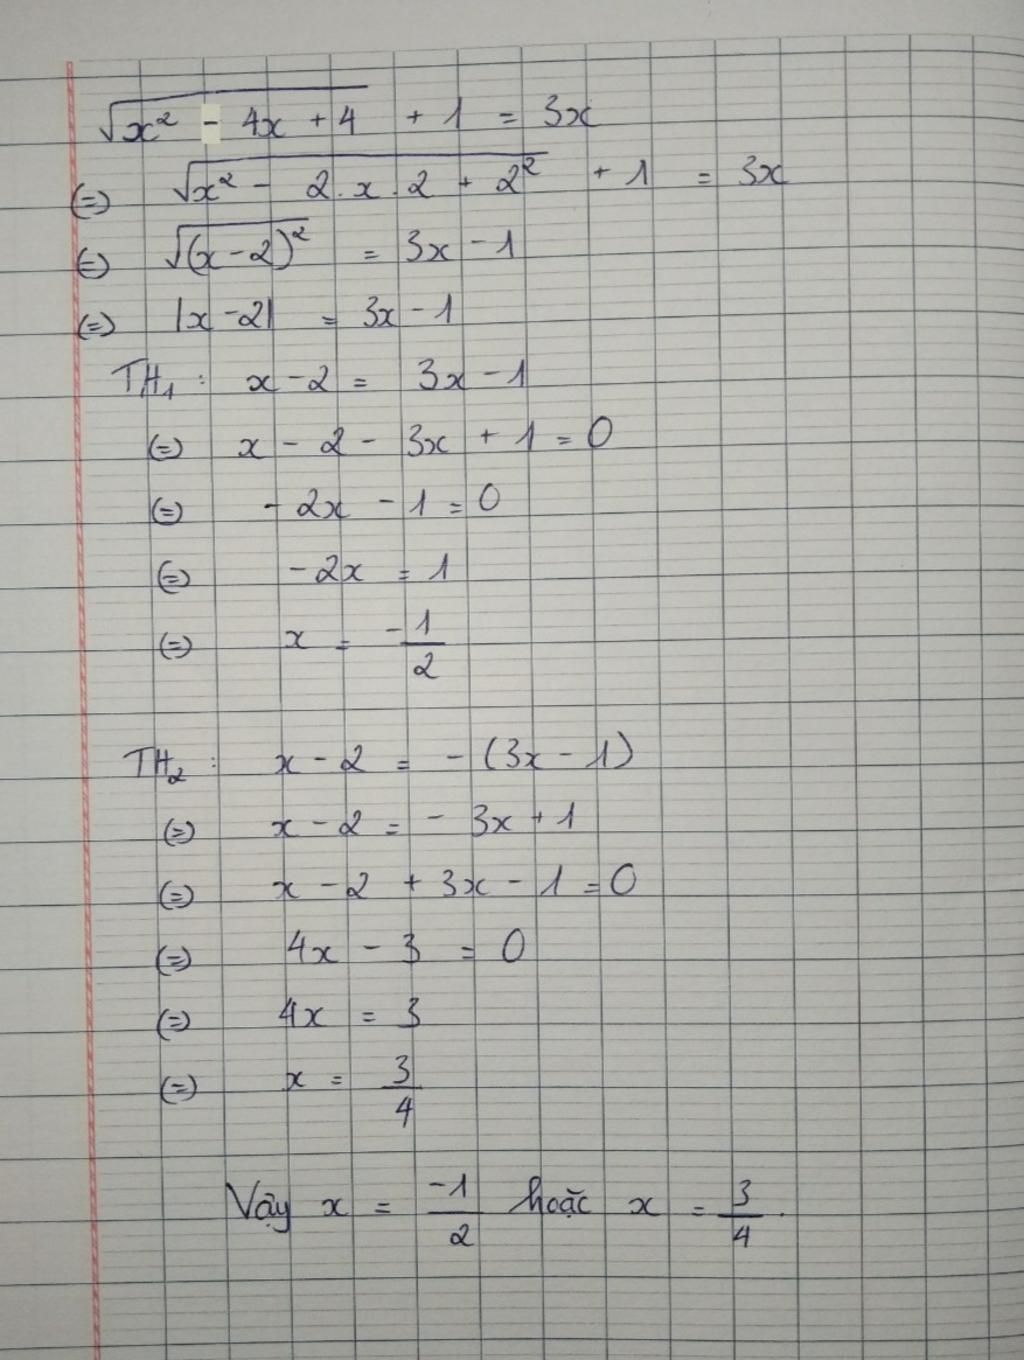 √(x² - 4x + 4) + 1 = 3x
(=) √(x² - 2.x.2 + 2²) + 1 = 3x
(=) √(x-2)² = 3x - 1
(=) |x - 2| = 3x - 1
TH₁ : x - 2 = 3x - 1
(=) x - 2 - 3x + 1 = 0
(=) - 2x - 1 = 0
(=) - 2x = 1
(=) x = -1/2
TH₂ : x - 2 = - (3x - 1)
(=) x - 2 = - 3x + 1
(=) x - 2 + 3x - 1 = 0
(=) 4x - 3 = 0
(=) 4x = 3
(=) x = 3/4
Vậy x = -1/2 hoặc x = 3/4 .